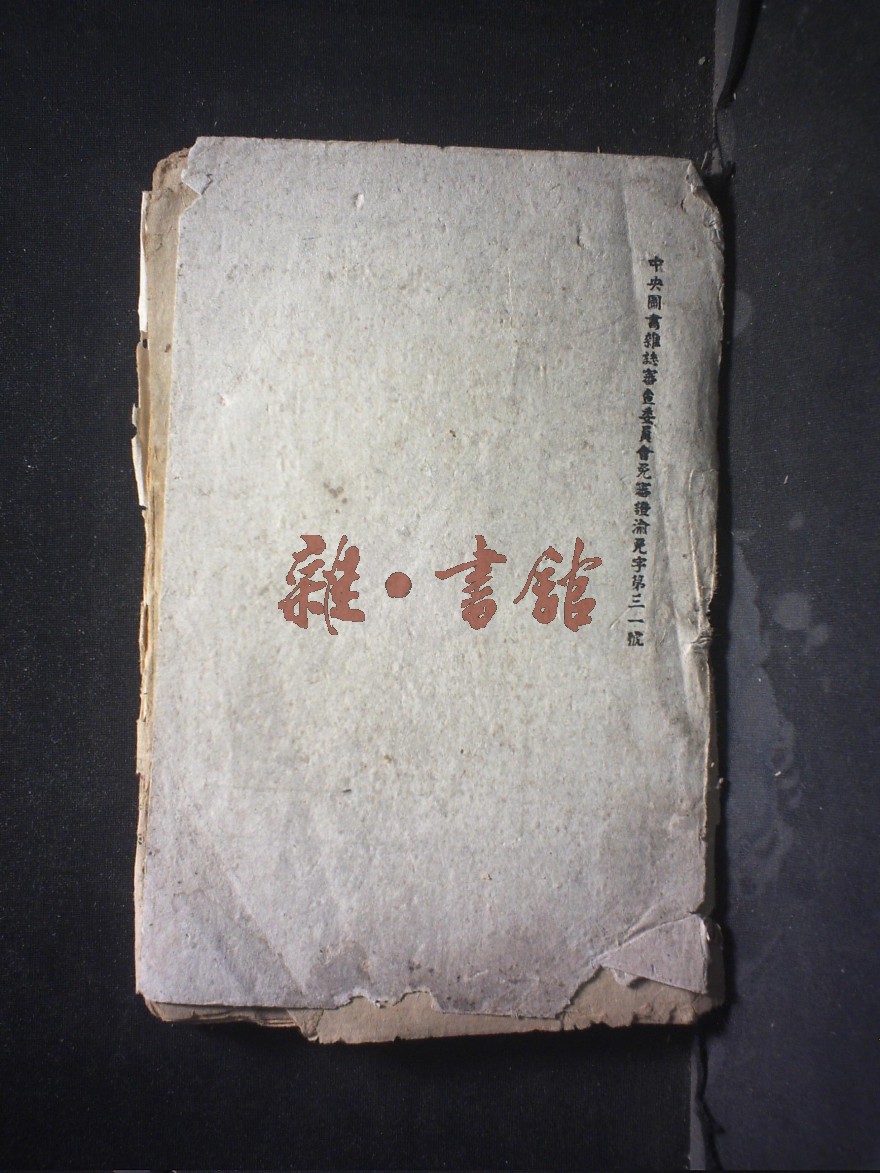 中央圖書雜誌審查委員會免審證渝免字第三一號
雜·書館